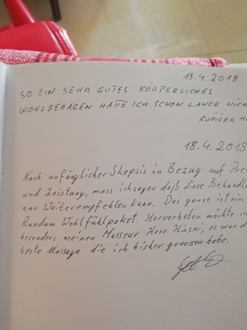 13.4.2018
SO EIN SEHR GUTES KÖRPERLICHES
WOHLBEHAGEN HATTE ICH SCHON LANGE NICH
RÜDIGER H
18.4.2018
Nach anfänglicher Skepsis in Bezug auf Pre
und Leistung, muss ich sagen daß diese Behandl
nur weiterempfehlen kann. Das ganze ist ein
Rundum Wohlfühlpaket. Hervorheben möchte i
besonders meinen Masseur Herr Hüsni, es war d
beste Massage die ich bisher genossen habe.